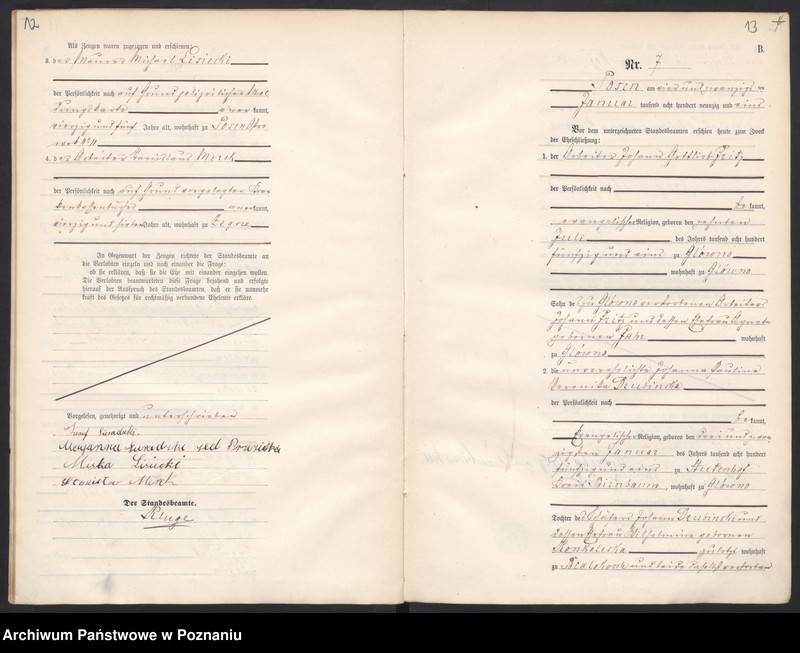 12
Als Zeugen waren zugezogen und erschienen:
3. der Maurer Michael Lisiecki
der Persönlichkeit nach auf Grund polizeilicher Mel
dungskarte kannt,
vierzig und fünf Jahre alt, wohnhaft zu Posen
4. der Arbeiter Stanislaus Mersch
der Persönlichkeit nach auf Grund vorgelegten Kran
kenkassenbuches anerkannt,
vierzig und sieben Jahre alt, wohnhaft zu Zegrze
In Gegenwart der Zeugen richtete der Standesbeamte an
die Verlobten einzeln und nach einander die Frage:
ob sie erklären, daß sie die Ehe mit einander eingehen wollen.
Die Verlobten beantworteten diese Frage bejahend und erfolgte
hierauf der Ausspruch des Standesbeamten, daß er sie nunmehr
kraft des Gesetzes für rechtmäßig verbundene Eheleute erkläre.
Vorgelesen, genehmigt und unterschrieben
Maryanna
Lisiecki
Der Standesbeamte.
Kluge
13
B.
Nr. 7
Posen am vier und zwanzigsten
Januar tausend acht hundert neunzig und eins
Vor dem unterzeichneten Standesbeamten erschien heute zum Zweck
der Eheschließung:
1. der Arbeiter Johann Gottlieb Fritz
der Persönlichkeit nach
be kannt,
evangelischer Religion, geboren den zehnten
Juli des Jahres tausend acht hundert
fünfzig und eins zu Glowno
wohnhaft zu Glowno
Sohn des zu Glowno verstorbenen Arbeiters
Johann Fritz und dessen Ehefrau
geborenen wohnhaft
zu Glowno
2. die unverehelichte Johanna Pauline
Veronika Dzubinska
der Persönlichkeit nach
be kannt,
evangelischer Religion, geboren den drei und zwan
zigsten Januar des Jahres tausend acht hundert
fünfzig und eins zu
Kreis Birnbaum, wohnhaft zu Glowno
Tochter des Schäfers Johann Dzubinski und
dessen Ehefrau Wilhelmine geborenen
zuletzt wohnhaft
zu und beide daselbst verstorben
Archiwum Państwowe w Poznaniu